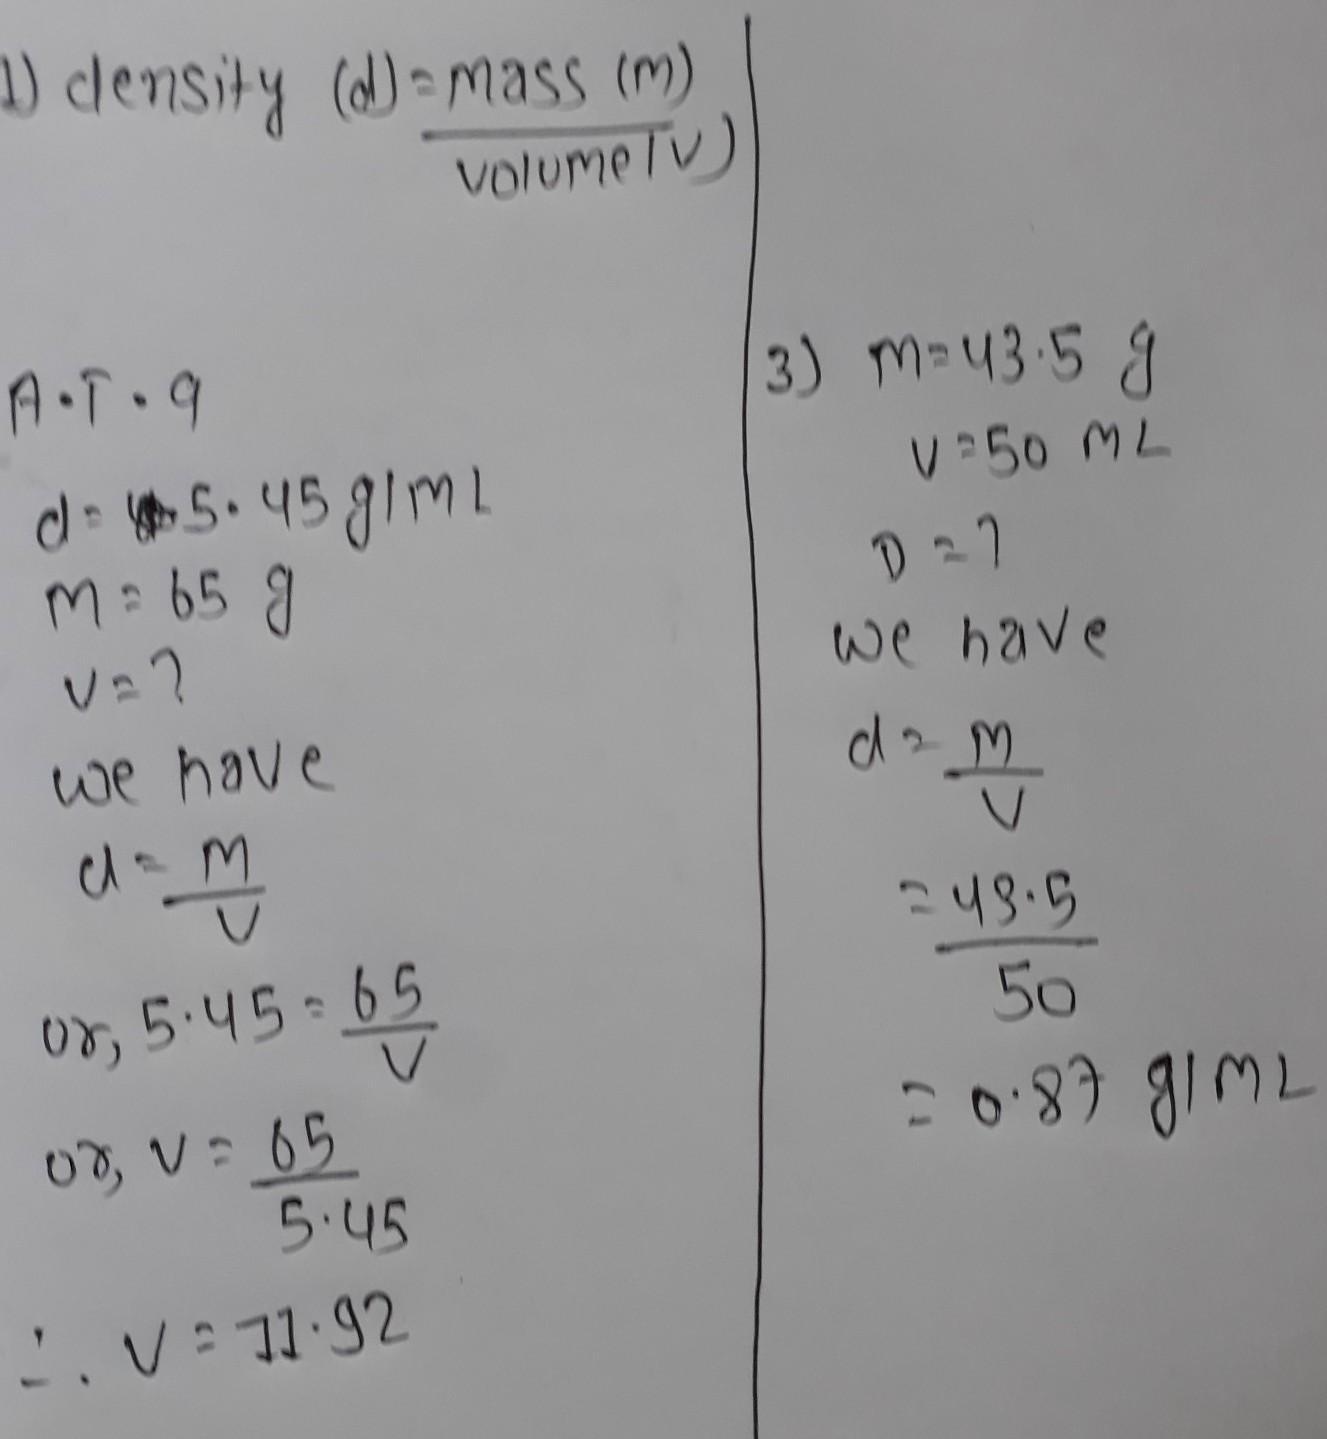 1) density (d) = mass (m)
volume (v)
A.T.q
d = 5.45 g/mL
m = 65 g
v = ?
we have
d = m
v
or, 5.45 = 65
v
or, v = 65
5.45
∴ v = 11.92
3) m = 43.5 g
v = 50 mL
D = ?
we have
d = m
v
= 43.5
50
= 0.87 g/mL